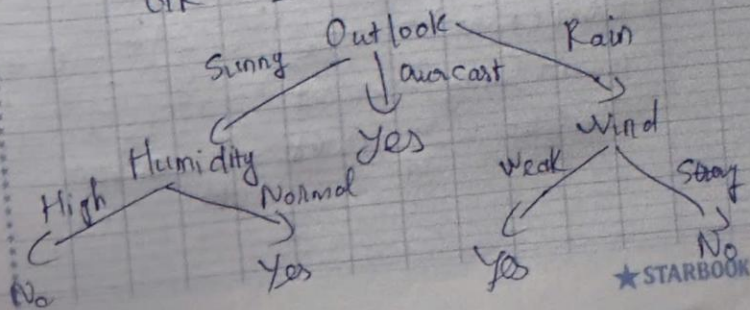 Outlook
Sunny Overcast Rain
Humidity Yes Wind
High Normal Weak Strong
No Yes Yes No
STARBOOK